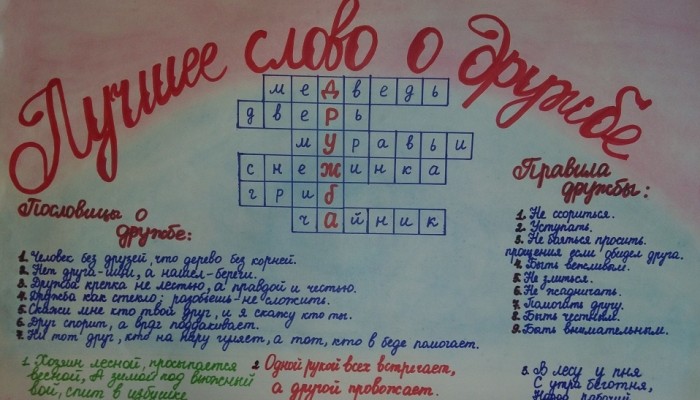 Лучшее слово о дружбе
медведь
дверь
муравьи
снежинка
гриб
чайник
Пословицы о
дружбе:
1. Человек без друзей, что дерево без корней.
2. Нет друга-ищи, а нашел-береги.
3. Дружба крепка не лестью, а правдой и честью.
4. Дружба как стекло, разобьешь-не сложить.
5. Скажи мне кто твой друг, и я скажу кто ты.
6. Друг спорит, а враг поддакивает.
7. Не тот друг, кто на пиру гуляет, а тот, кто в беде помогает.
Правила
дружбы:
1. Не ссориться.
2. Уступать.
3. Не бояться просить
прощения если обидел друга.
4. Быть вежливым.
5. Не злиться.
6. Не жадничать.
7. Помогать другу.
8. Быть честным.
9. Быть внимательным.
1. Хозяин лесной, просыпается
весной, А зимой под вьюжный
вой, спит в избушке
2. Одной рукой всех встречает,
а другой провожает.
3. В лесу у пня
С утра беготня,
Народ рабочий